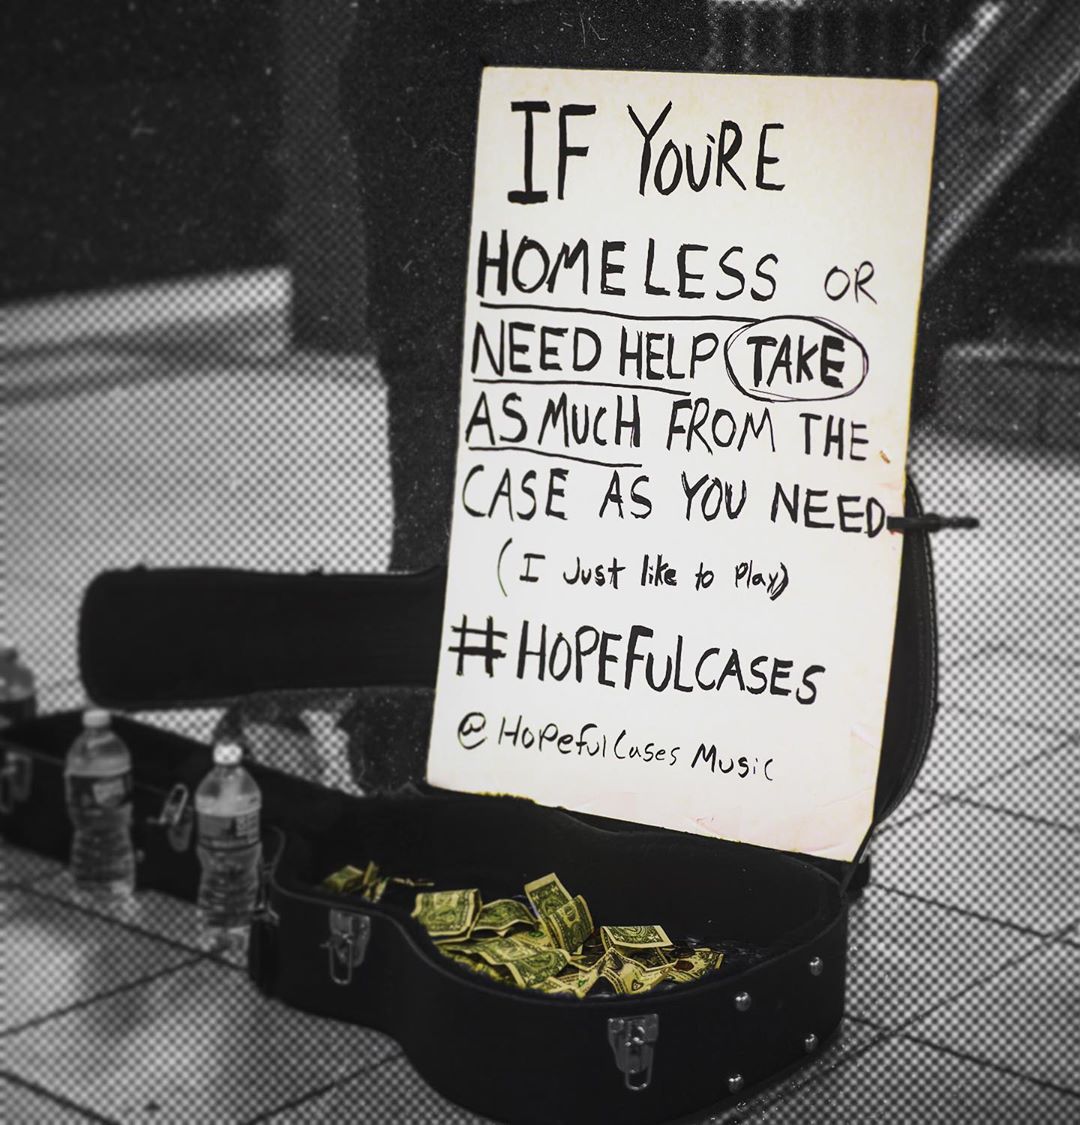 IF YOU'RE
HOMELESS OR
NEED HELP TAKE
AS MUCH FROM THE
CASE AS YOU NEED
(I Just like to Play)
#HOPEFULCASES
@HopefulCases Music